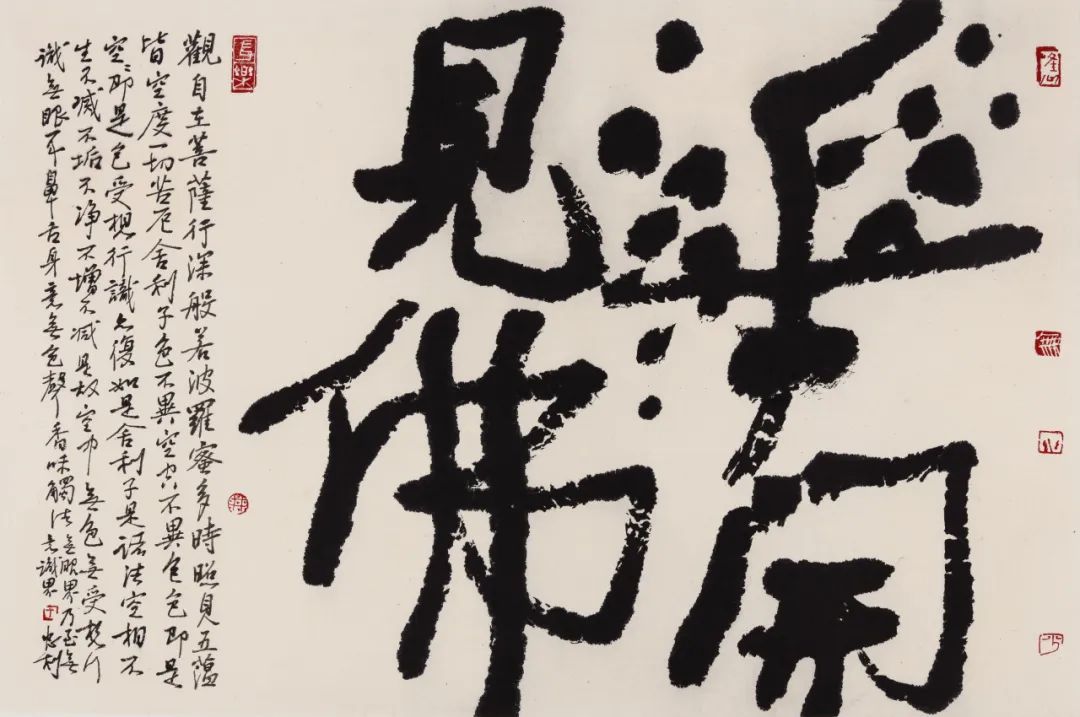 華開
見佛
觀自在菩薩行深般若波羅蜜多時照見五蘊
皆空度一切苦厄舍利子色不異空々不異色色即是
空々即是色受想行識亦復如是舍利子是諸法空相不
生不滅不垢不净不增不减是故空中無色無受想行
識無眼耳鼻舌身意無色聲香味觸法無眼界乃至無
意識界 忠利